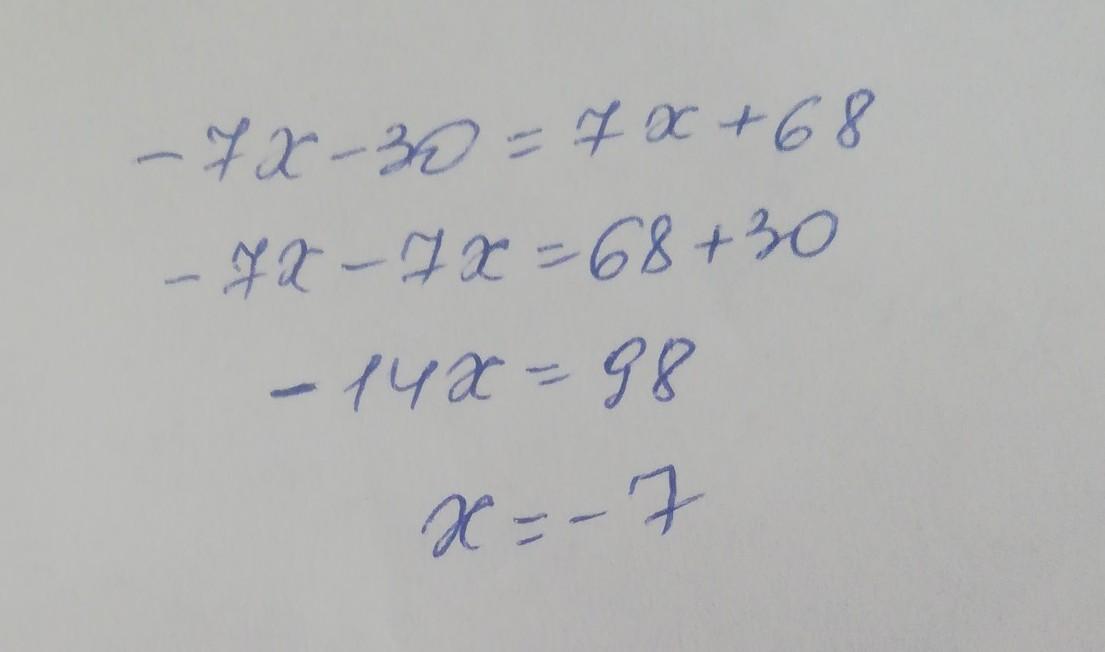 -7x-30=7x+68
-7x-7x=68+30
-14x=98
x=-7